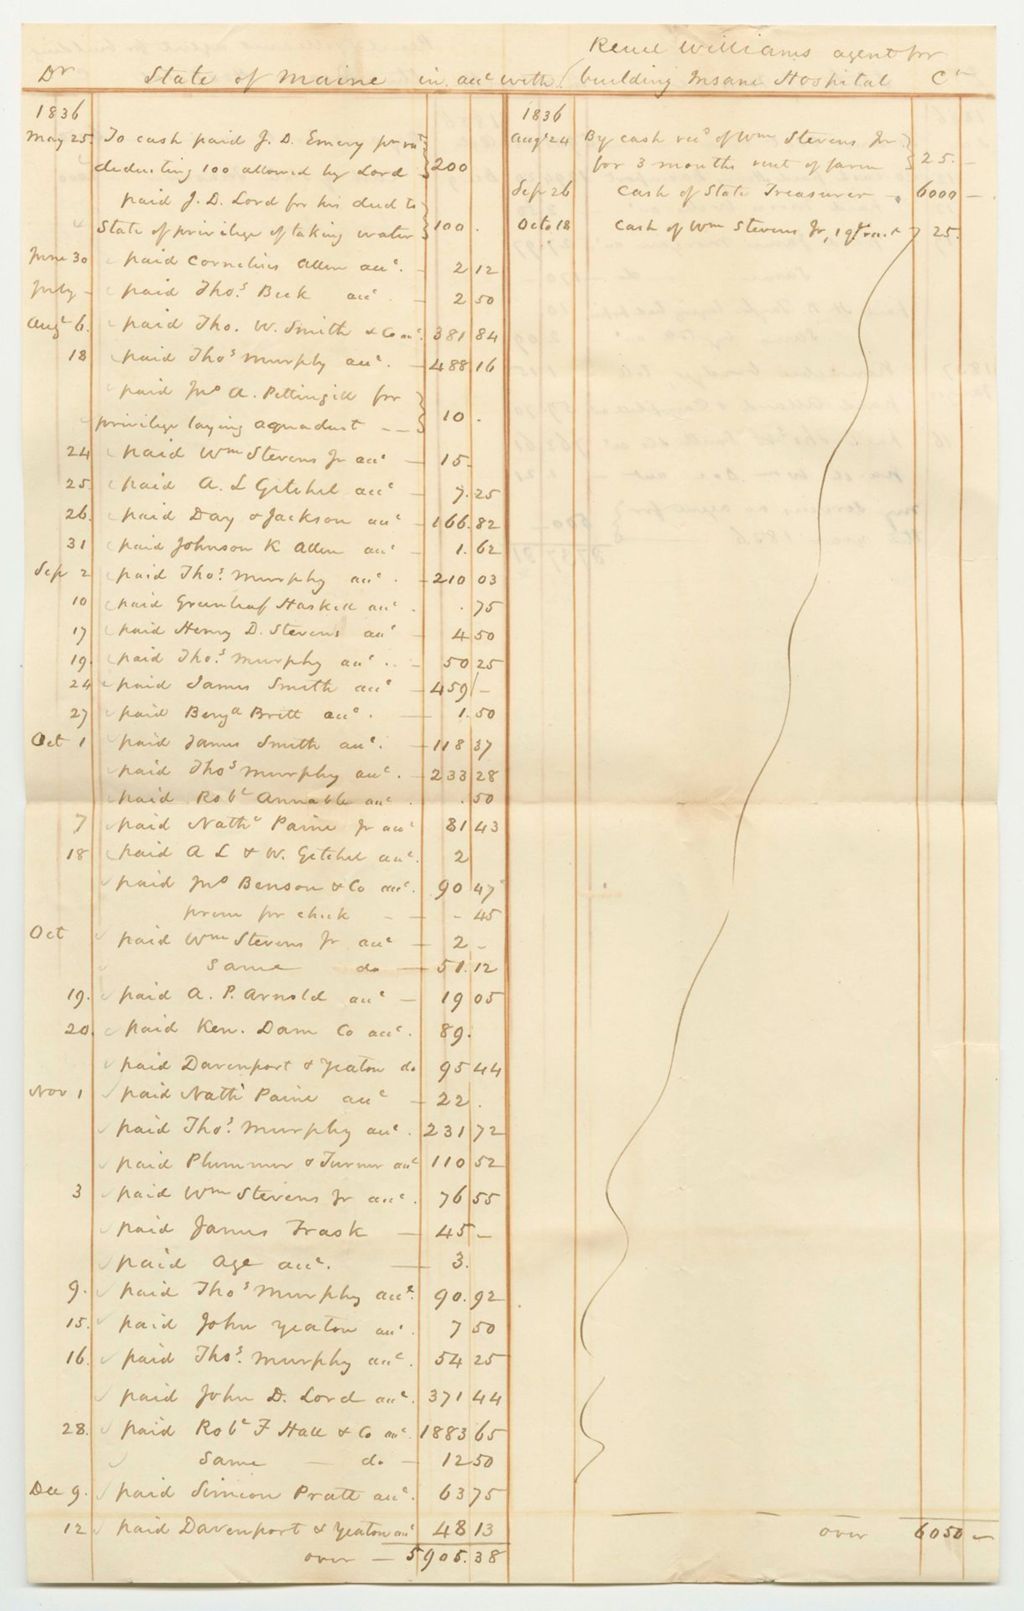 Reuel Williams agent for
Dr State of Maine in acc with building Insane Hospital Cr
1836
May 25. To cash paid J. D. Emery pr rect
deducting 100 allowed by Lord 200
paid J. D. Lord for his deed to
State of privilege of taking water 100.
June 30 paid Cornelius Allen acc. 2 12
July paid Thos. Beck acc 2 50
Augt 6. paid Tho. W. Smith & Co acc 381 84
18 paid Thos Murphy acc. 488 16
paid Jno A. Pettingill for
privilege laying aquaduct 10.
24 paid Wm Stevens Jr acc 15.
25 paid A. L Getchel acc 7.25
26. paid Day & Jackson acc 166.82
31 paid Johnson K Allen acc 1.62
Sep 2 paid Thos. Murphy acc. 210 03
10 paid Greenleaf Haskell acc . 75
17 paid Henry D. Stevens acc 4 50
19. paid Thos. Murphy acc. 50 25
24 paid James Smith acc 459 -
27 paid Benja Britt acc. 1.50
Oct 1 paid James Smith acc. 118 37
paid Thos Murphy acc. 233 28
paid Robt Annable acc . 50
7 paid Nathl Paine Jr acc 81 43
18 paid A L & W. Getchel acc. 2
paid Jno Benson & Co acc. 90 47
prem for check - - 45
Oct paid Wm Stevens Jr acc 2 -
same do 51.12
19. paid A. P. Arnold acc 19 05
20. paid Ken. Dam Co acc. 89.
paid Davenport & Yeaton do 95 44
Nov 1 paid Nathl Paine acc 22.
paid Thos. Murphy acc. 231 72
paid Plummer & Turner acc 110 52
3 paid Wm Stevens Jr acc. 76 55
paid James Trask 45 -
paid Age acc. 3.
9. paid Thos Murphy acc. 90.92
15. paid John Yeaton acc. 7 50
16. paid Thos. Murphy acc. 54 25
paid John D. Lord acc. 371 44
28. paid Robt F Hall & Co acc. 1883 65
same do 12 50
Dec 9. paid Simeon Pratt acc. 63 75
12 paid Davenport & Yeaton acc 48 13
over 5905.38
1836
Augt 24 By cash recd of Wm Stevens Jr
for 3 months rent of farm 25. -
Sep 26 cash of State Treasurer 6000 -
Octo 18 cash of Wm Stevens Jr, 1 qr rent 25.
over 6050 -